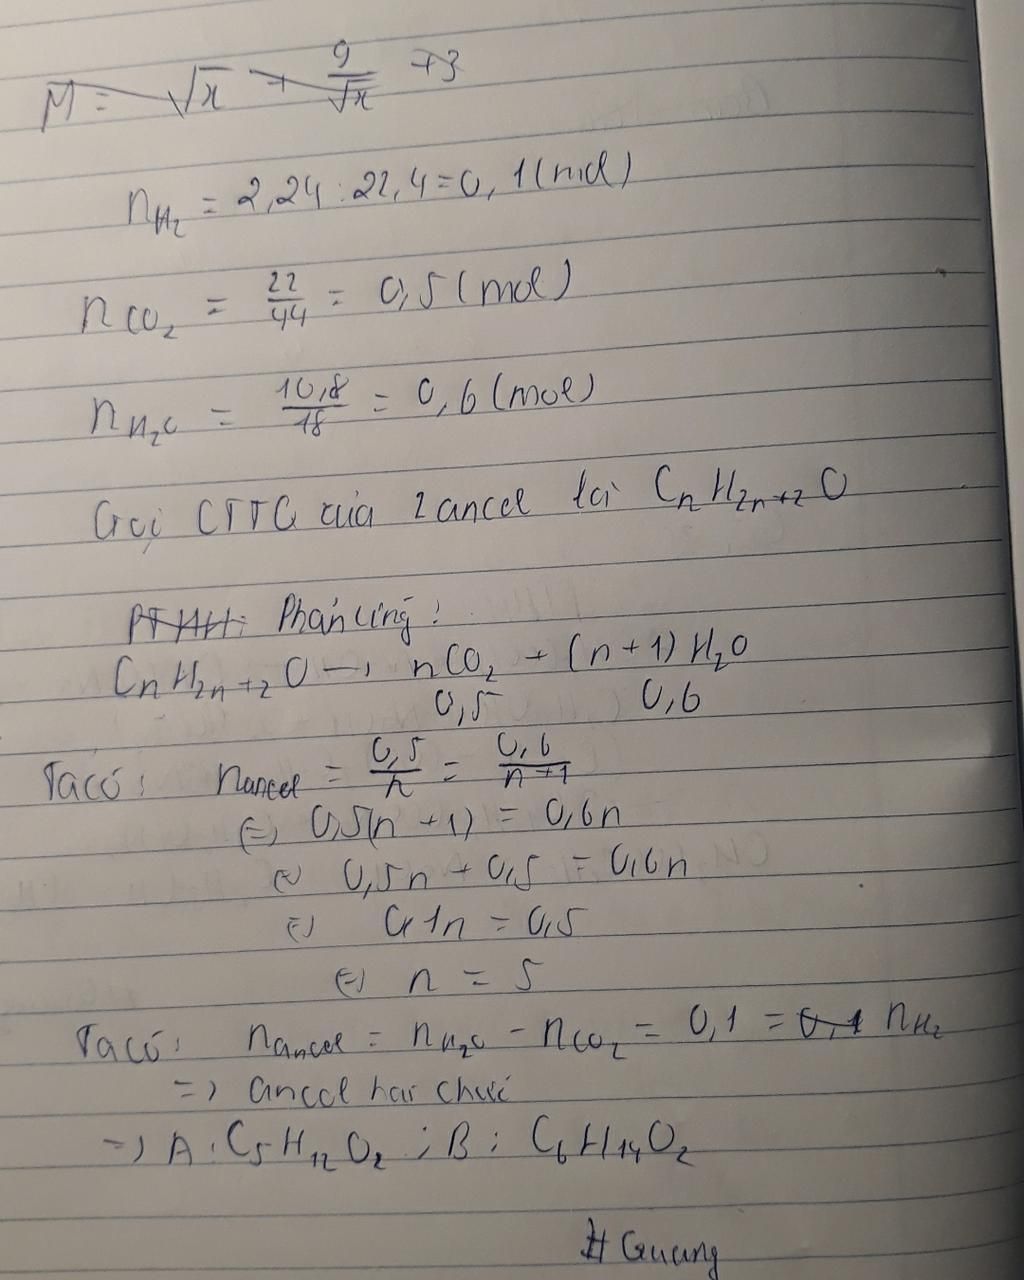 M = √x + 9/√x + 3
n_H₂ = 2,24 : 22,4 = 0,1 (mol)
n_CO₂ = 22/44 = 0,5 (mol)
n_H₂O = 10,8/18 = 0,6 (mol)
Gọi CTTQ của 2 ancol là CₙH₂ₙ₊₂O
PTHH: Phản ứng:
CₙH₂ₙ₊₂O → nCO₂ + (n+1) H₂O
0,5 0,6
Ta có: n_ancol = 0,5/n = 0,6/n+1
⇔ 0,5(n+1) = 0,6n
⇔ 0,5n + 0,5 = 0,6n
⇔ 0,1n = 0,5
⇔ n = 5
Ta có: n_ancol = n_H₂O - n_CO₂ = 0,1 = 0,1 n_H₂
=> ancol hai chức
=> A : C₅H₁₂O₂ ; B : C₆H₁₄O₂
# Quang